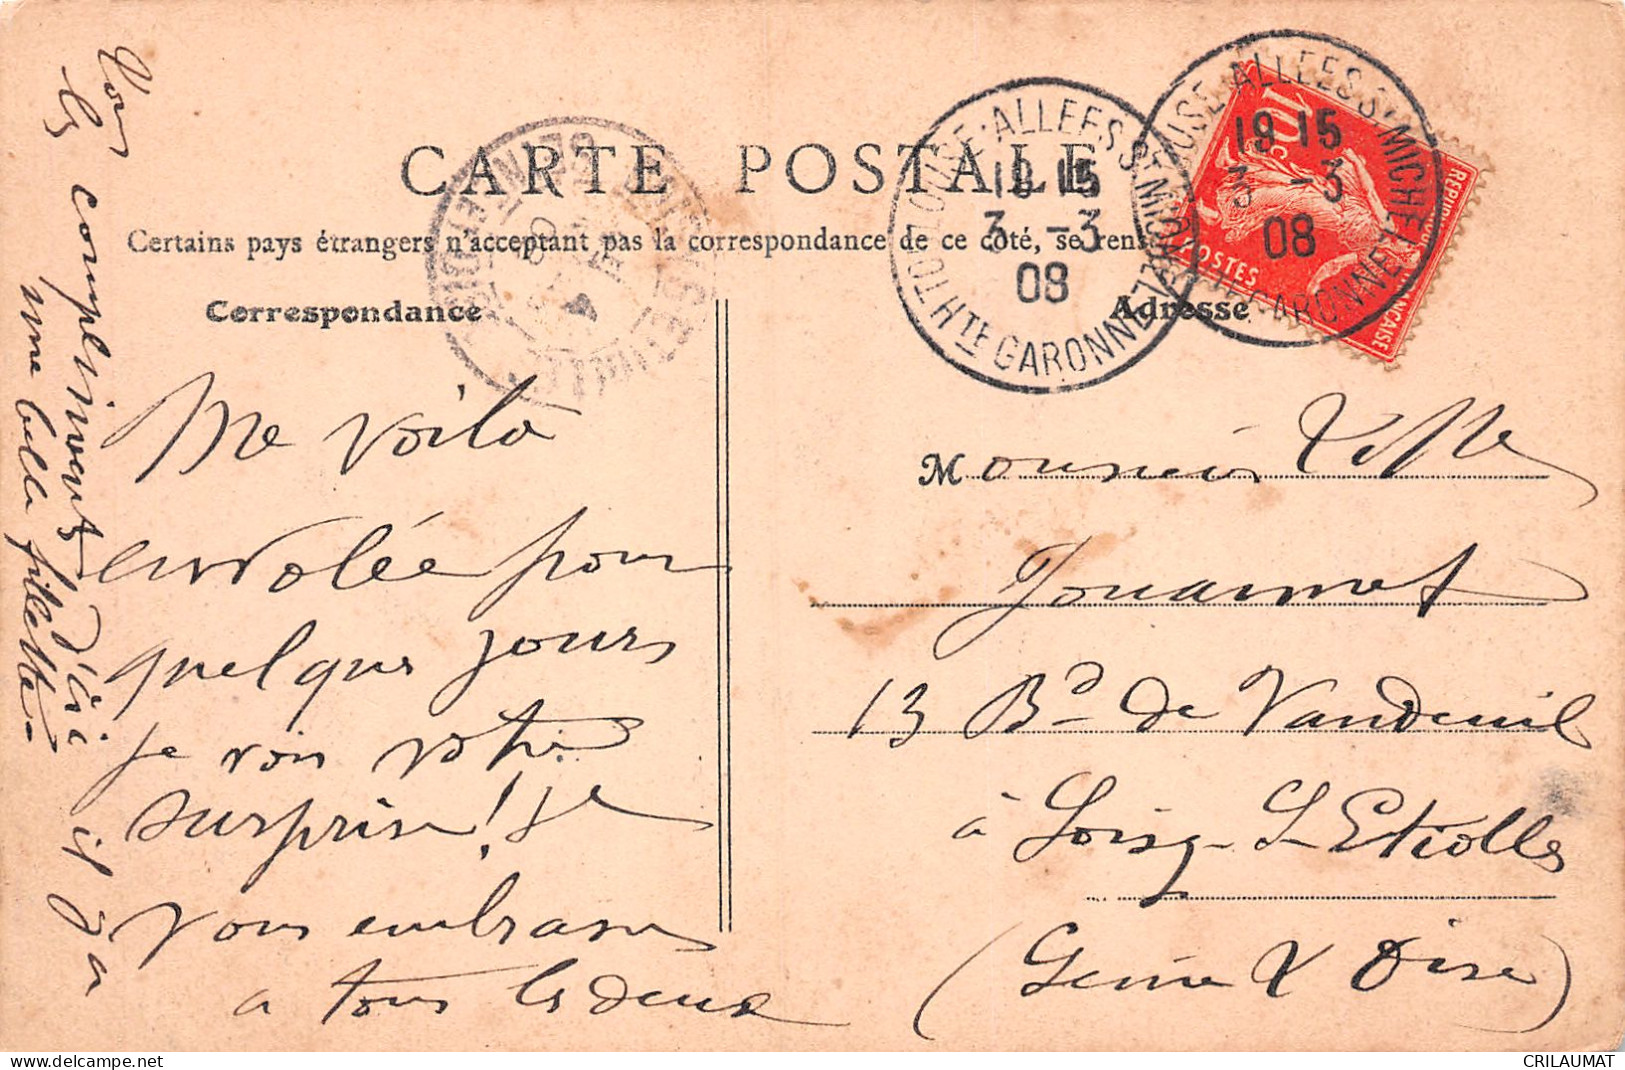 CARTE POSTALE
Certains pays étrangers n'acceptant pas la correspondance de ce côté, se rens
Correspondance
Adresse
TOULOUSE-ALLEES ST MICHEL
19 15
3 -3
08
HTE GARONNE
TOULOUSE-ALLEES ST MICHEL
19 15
3 -3
08
HTE GARONNE
10c
POSTES
SEINE ET OISE
Me voilà
envolée pour
quelques jours
je vois votre
surprise! je
vous embrasse
a tous les deux
les compliments d'ici il y a
une belle fillette
Monsieur
13 Bd de Vandeuil
à Soisy-S-Etiolles
(Seine & Oise)
www.delcampe.net
CRILAUMAT